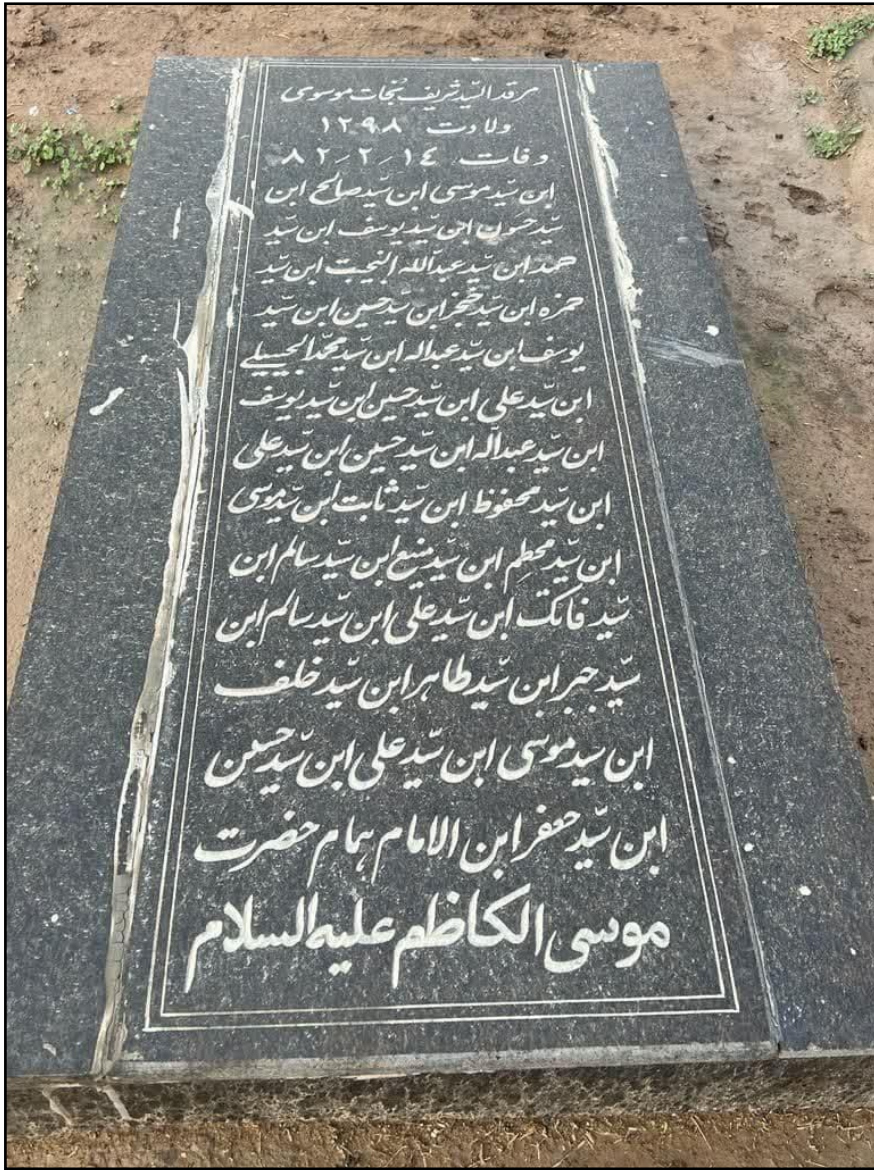 مرقد السّید شریف نجات موسوی
ولادت ۱۲۹۸
وفات ۱٤-۲-۸۲
ابن سّید موسی ابن سّید صالح ابن
سّید حسون ابن سّید یوسف ابن سّید
حمد ابن سّید عبدالله النجیب ابن سّید
حمزه ابن سّید خنجر ابن سّید حسین ابن سّید
یوسف ابن سّید عبداله ابن سّید محمّد
ابن سّید علی ابن سّید حسین ابن سّید یوسف
ابن سّید عبداله ابن سّید حسین ابن سّید علی
ابن سّید محفوظ ابن سّید ثابت ابن سّید موسی
ابن سّید محطم ابن سّید منیع ابن سّید سالم ابن
سّید فاتک ابن سّید علی ابن سّید سالم ابن
سّید جبر ابن سّید طاهر ابن سّید خلف
ابن سید موسی ابن سّید علی ابن سّید حسین
ابن سّید جعفر ابن الامام همام حضرت
موسی الکاظم علیه السلام